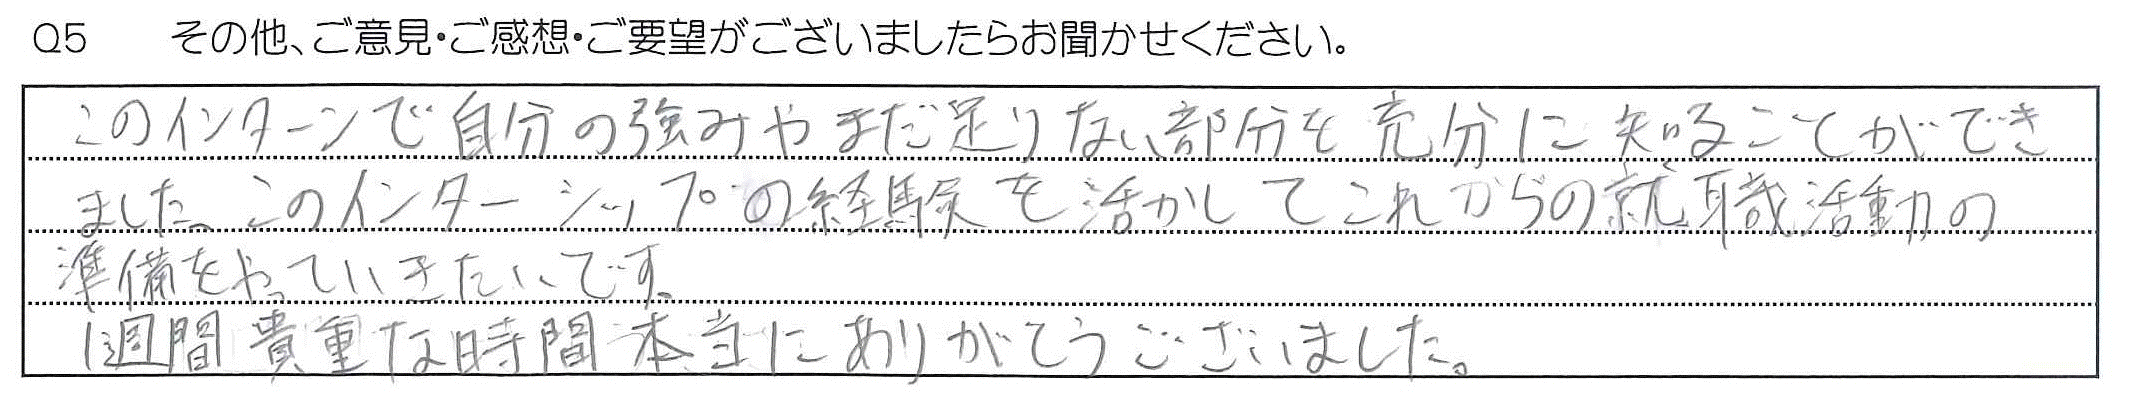 Q5 その他、ご意見・ご感想・ご要望がございましたらお聞かせください。
このインターンで自分の強みやまだ足りない部分を充分に知ることができ
ました。このインターンシップの経験を活かしてこれからの就職活動の
準備をやっていきたいです。
1週間貴重な時間本当にありがとうございました。